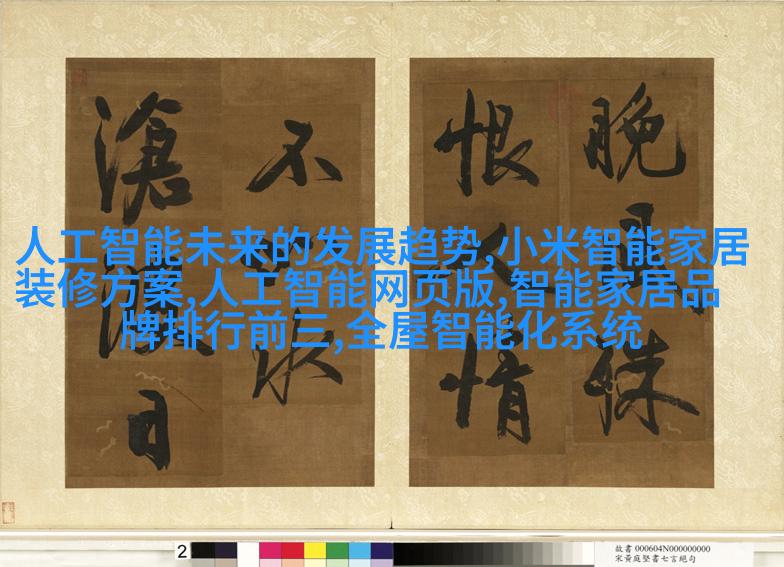 晚 殊
恨 情
不 水
滄浪日
人工智能未来的发展趋势,小米智能家居
装修方案,人工智能网页版,智能家居品
牌排行前三,全屋智能化系统
2
故書 000604N000000000
宋黃庭堅書七言絕句